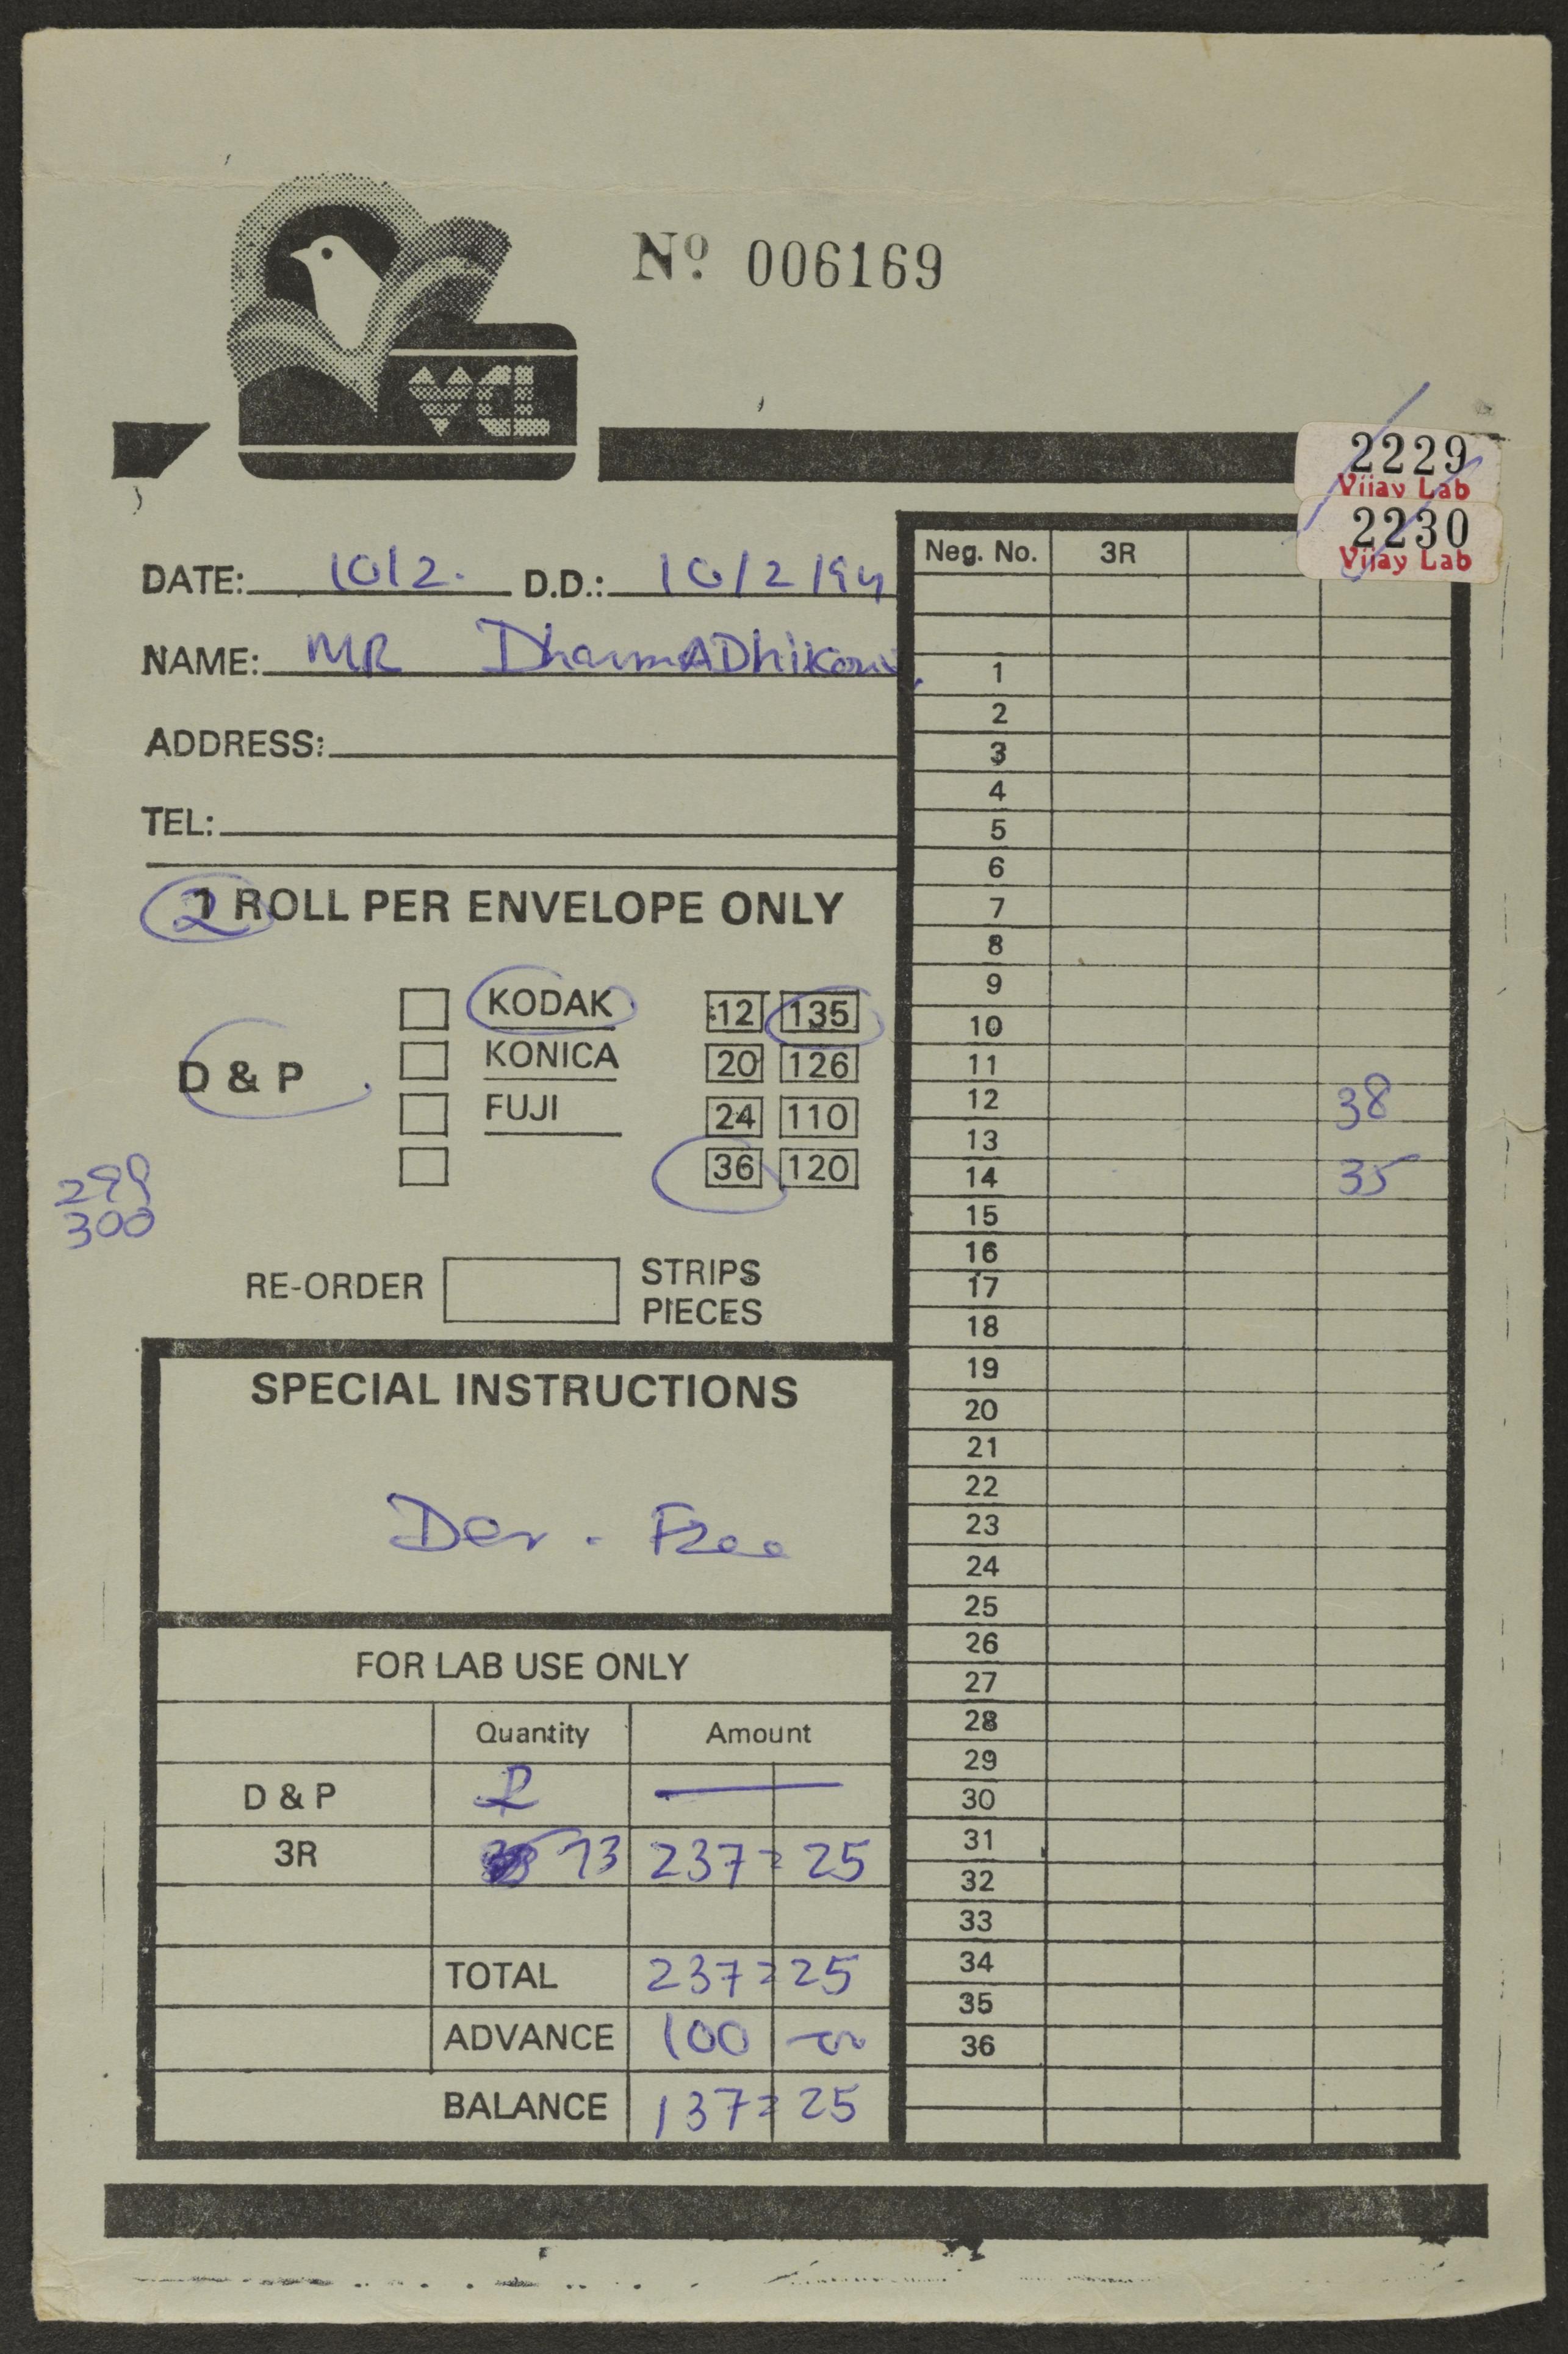 Nº 006169
VCL
2229
Vijay Lab
2230
Vijay Lab
DATE: 10/2. D.D.: 10/2/94
NAME: MR DharmADhikari
ADDRESS:
TEL:
2 1 ROLL PER ENVELOPE ONLY
D & P
KODAK 12 135
KONICA 20 126
FUJI 24 110
36 120
299
300
RE-ORDER STRIPS
PIECES
SPECIAL INSTRUCTIONS
Dev. Free
FOR LAB USE ONLY
Quantity Amount
D & P 2 —
3R 73 237=25
TOTAL 237=25
ADVANCE 100
BALANCE 137=25
Neg. No. 3R
1
2
3
4
5
6
7
8
9
10
11
12 38
13
14 35
15
16
17
18
19
20
21
22
23
24
25
26
27
28
29
30
31
32
33
34
35
36